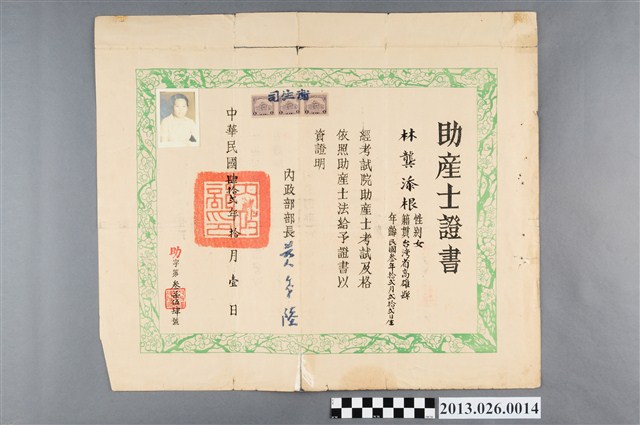 助產士證書
林龔添根
性別女
籍貫台灣省高雄縣
年齡民國叁年拾弍月弍拾弍日生
經考試院助產士考試及格
依照助產士法給予證書以
資證明
內政部部長
中華民國肆拾弍年拾月壹日
助字第
號
衛生司
2013.026.0014